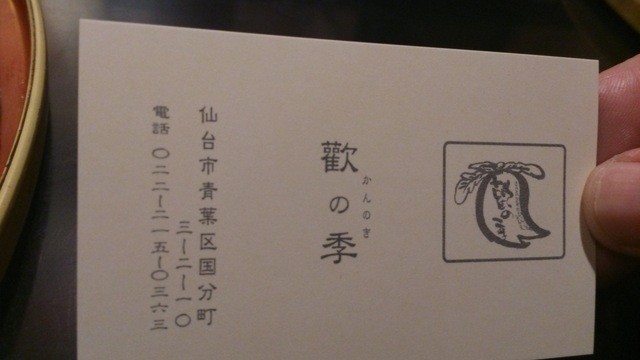 歡の季
かんのき
仙台市青葉区国分町
三ー二ー一〇
電話 〇二二ー二一五ー〇三六三